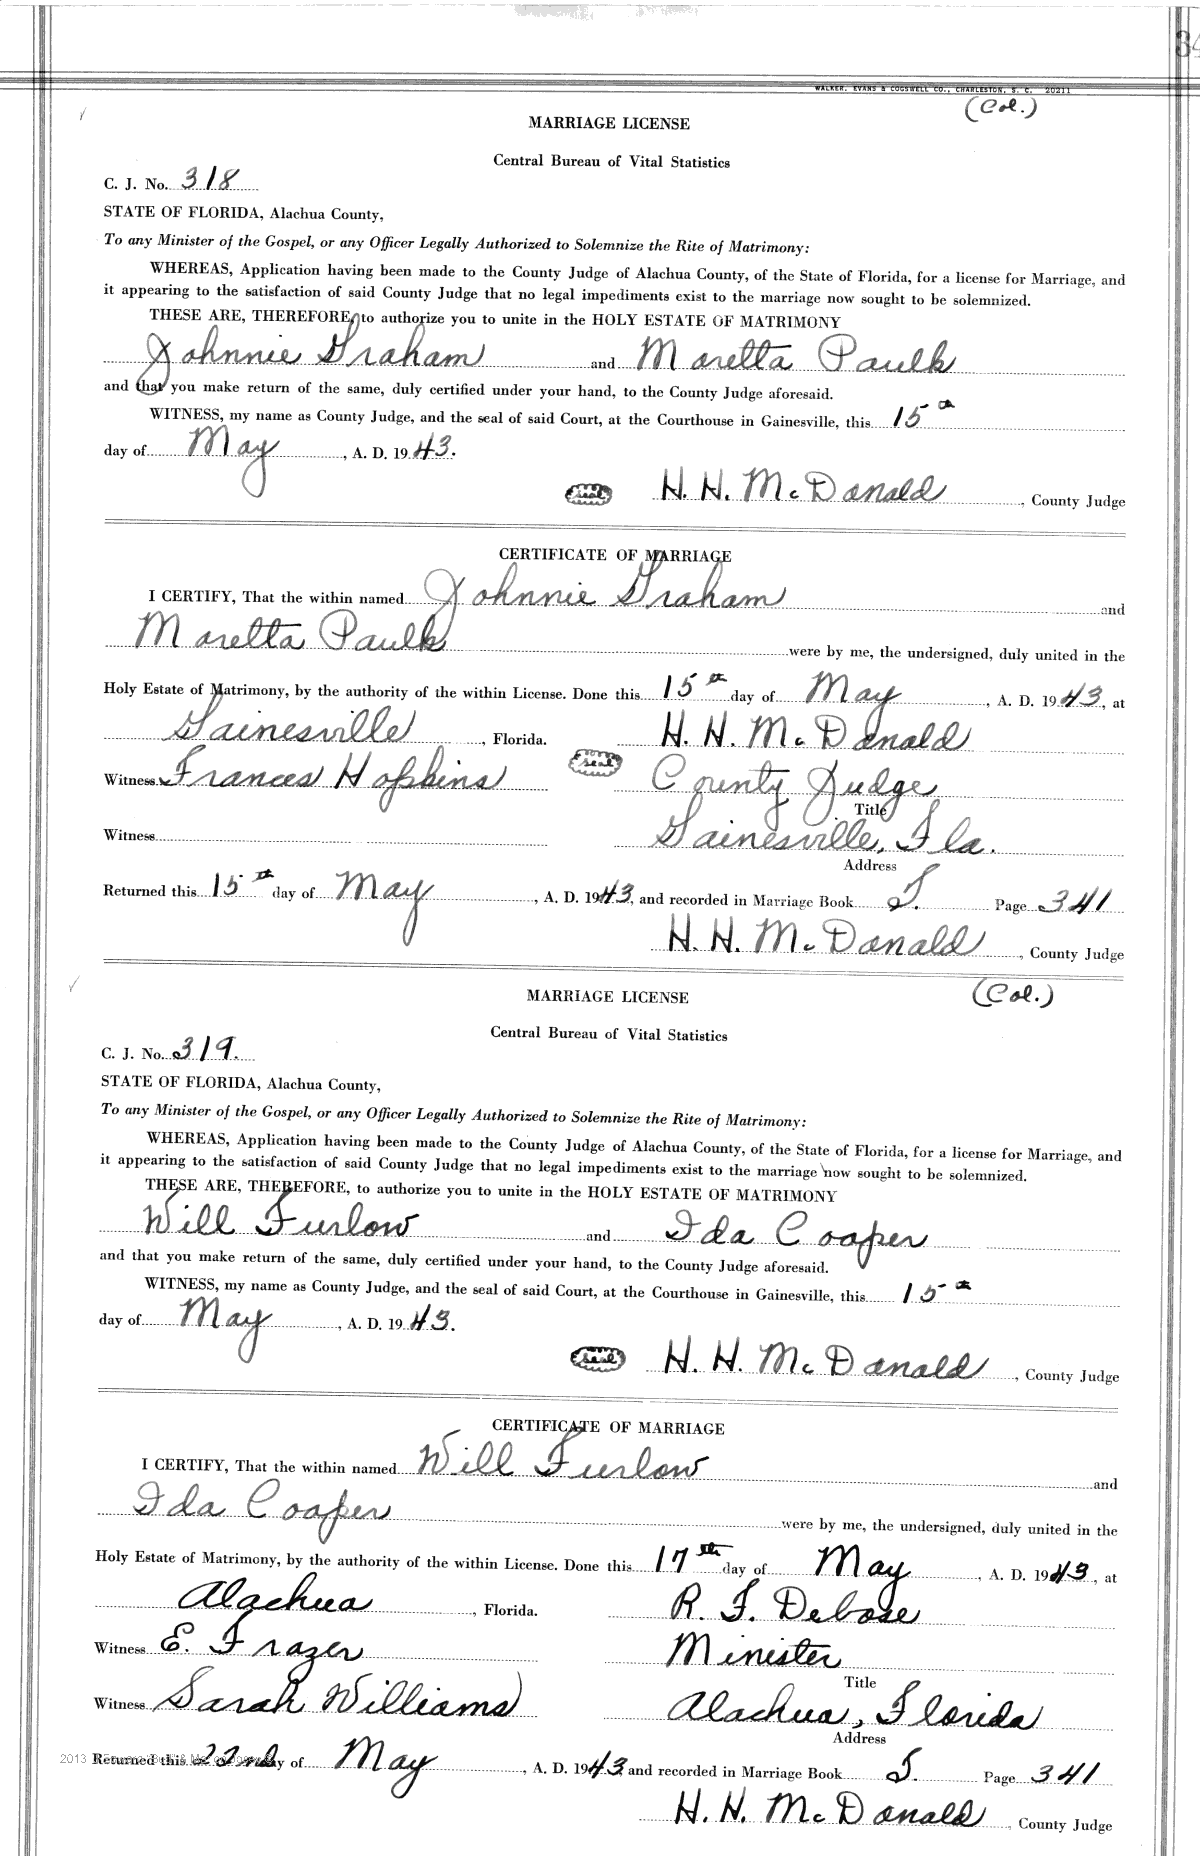 34
WALKER, EVANS & COGSWELL CO., CHARLESTON, S. C. 20211
(Col.)
MARRIAGE LICENSE
Central Bureau of Vital Statistics
C. J. No. 318
STATE OF FLORIDA, Alachua County,
To any Minister of the Gospel, or any Officer Legally Authorized to Solemnize the Rite of Matrimony:
WHEREAS, Application having been made to the County Judge of Alachua County, of the State of Florida, for a license for Marriage, and
it appearing to the satisfaction of said County Judge that no legal impediments exist to the marriage now sought to be solemnized.
THESE ARE, THEREFORE, to authorize you to unite in the HOLY ESTATE OF MATRIMONY
Johnnie Graham and Moretta Paulk
and that you make return of the same, duly certified under your hand, to the County Judge aforesaid.
WITNESS, my name as County Judge, and the seal of said Court, at the Courthouse in Gainesville, this 15th
day of May, A. D. 1943.
seal H. H. McDonald, County Judge
CERTIFICATE OF MARRIAGE
I CERTIFY, That the within named Johnnie Graham and
Moretta Paulk were by me, the undersigned, duly united in the
Holy Estate of Matrimony, by the authority of the within License. Done this 15th day of May, A. D. 1943, at
Gainesville, Florida. H. H. McDonald
Witness Frances Hopkins seal County Judge
Title
Witness Gainesville, Fla.
Address
Returned this 15th day of May, A. D. 1943, and recorded in Marriage Book S. Page 341
H. H. McDonald, County Judge
(Col.)
MARRIAGE LICENSE
Central Bureau of Vital Statistics
C. J. No. 319.
STATE OF FLORIDA, Alachua County,
To any Minister of the Gospel, or any Officer Legally Authorized to Solemnize the Rite of Matrimony:
WHEREAS, Application having been made to the County Judge of Alachua County, of the State of Florida, for a license for Marriage, and
it appearing to the satisfaction of said County Judge that no legal impediments exist to the marriage now sought to be solemnized.
THESE ARE, THEREFORE, to authorize you to unite in the HOLY ESTATE OF MATRIMONY
Will Furlow and Ida Cooper
and that you make return of the same, duly certified under your hand, to the County Judge aforesaid.
WITNESS, my name as County Judge, and the seal of said Court, at the Courthouse in Gainesville, this 15th
day of May, A. D. 1943.
seal H. H. McDonald, County Judge
CERTIFICATE OF MARRIAGE
I CERTIFY, That the within named Will Furlow and
Ida Cooper were by me, the undersigned, duly united in the
Holy Estate of Matrimony, by the authority of the within License. Done this 17th day of May, A. D. 1943, at
Alachua, Florida. R. F. Debose
Witness E. Frazer Minister
Title
Witness Sarah Williams Alachua, Florida
Address
2013
Returned this 22nd day of May, A. D. 1943 and recorded in Marriage Book S. Page 341
H. H. McDonald, County Judge